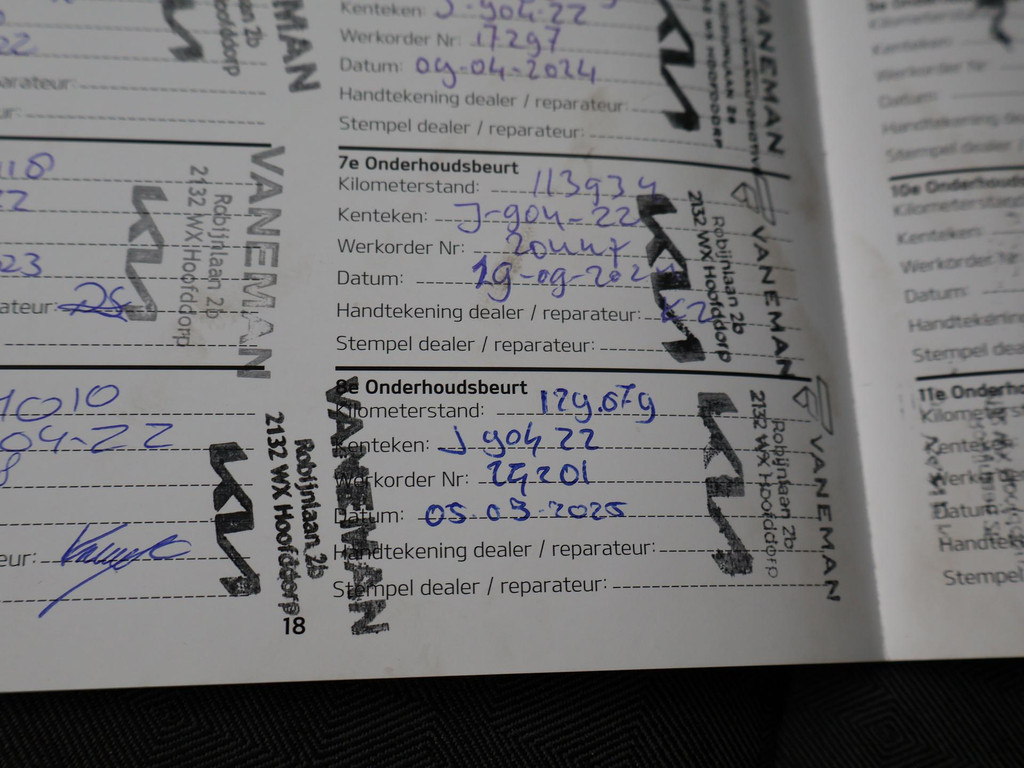 Kenteken: J-904-22
Werkorder Nr: 17297
Datum: 09-04-2024
Handtekening dealer / reparateur:
Stempel dealer / reparateur:
VANEMAN
7e Onderhoudsbeurt
Kilometerstand: 113934
Kenteken: J-904-22
Werkorder Nr: 20447
Datum: 19-09-202
Handtekening dealer / reparateur:
Stempel dealer / reparateur:
KIA
VANEMAN
Robijnlaan 2b
2132 WX Hoofddorp
8e Onderhoudsbeurt
Kilometerstand: 129.079
Kenteken: J 904 22
Werkorder Nr:
Datum: 05.03.2025
Handtekening dealer / reparateur:
Stempel dealer / reparateur:
KIA
VANEMAN
Robijnlaan 2b
2132 WX Hoofddorp
VANEMAN
Robijnlaan 2b
2132 WX Hoofddorp
KIA
VANEMAN
Robijnlaan 2b
2132 WX Hoofddorp
KIA
18
Kenteken:
Werkorder Nr:
Datum:
Handtekening dealer
Stempel dealer
10e Onderhouds
Kilometerstand
Kenteken:
Werkorder Nr:
Datum:
Handtekening
Stempel dea
11e Onderho
Kilometers
Kenteke
Werkor
Datum
Handte
Stempel